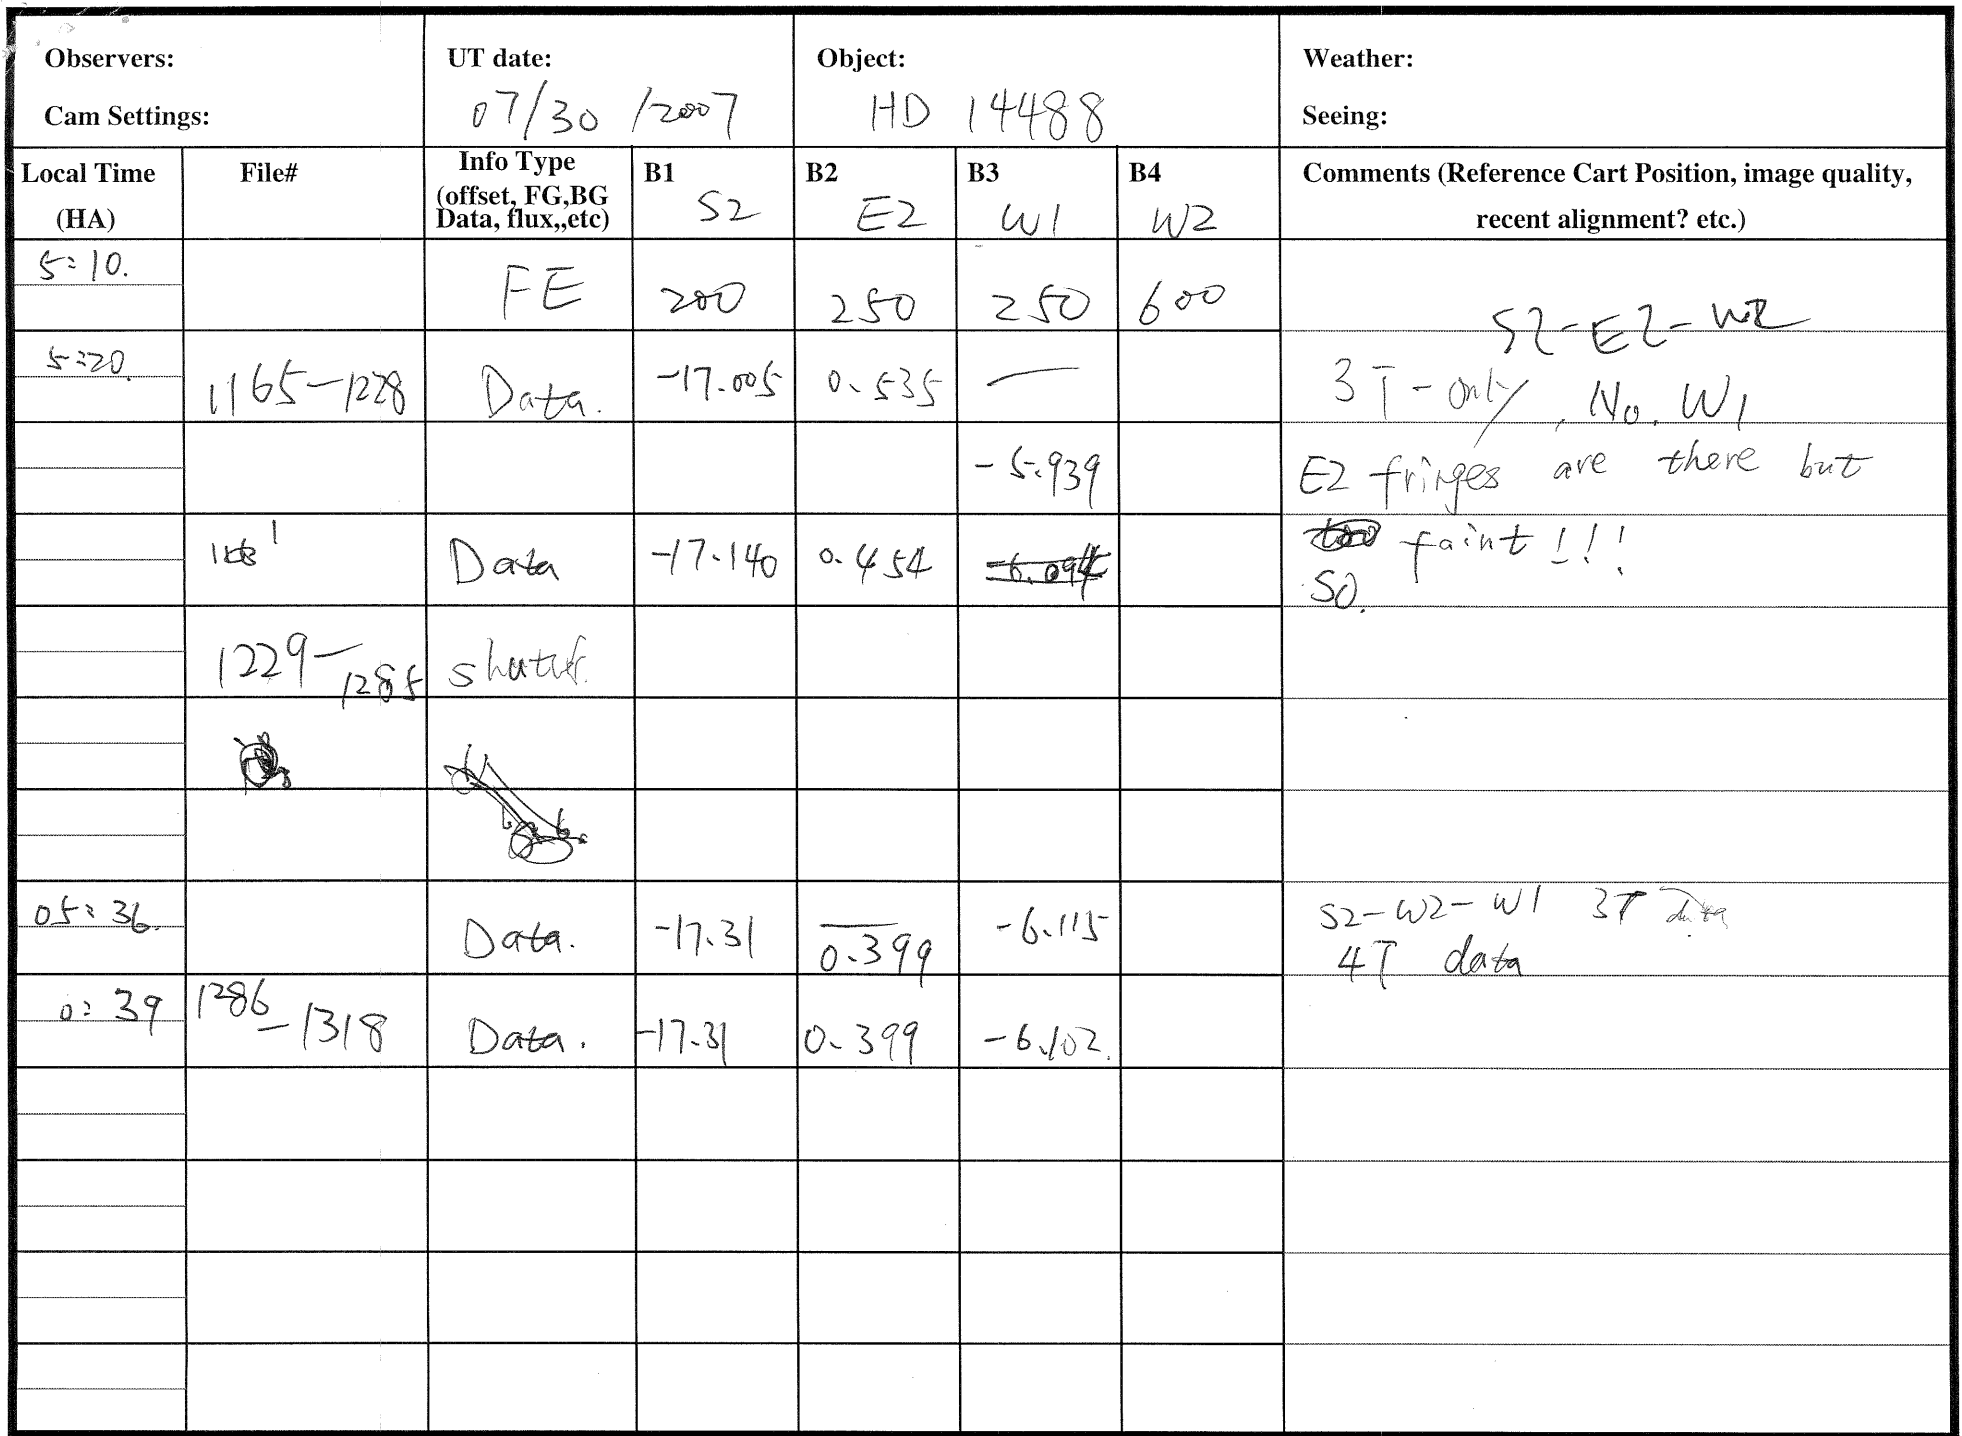 Observers: UT date: Object: Weather:
Cam Settings: 07/30/2007 HD 14488 Seeing:
Local Time (HA) File# Info Type (offset, FG,BG Data, flux,,etc) B1 S2 B2 E2 B3 W1 B4 W2 Comments (Reference Cart Position, image quality, recent alignment? etc.)
5:10. FE 200 250 250 600
S2-E2-W2
5:20. 1165-1228 Data. -17.005 0.535 — 3T-only, No. W1
-5.939 E2 fringes are there but
Data -17.140 0.454 -6.094 too faint!!!
so.
1229-1285
05:36. Data. -17.31 0.399 -6.115 S2-W2-W1 3T data
4T data
0:39 1286-1318 Data. -17.31 0.399 -6.102.